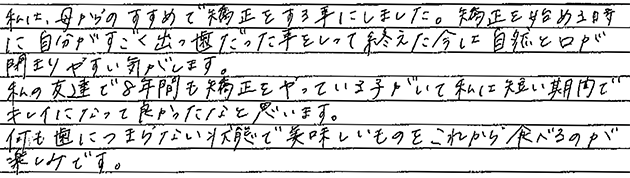 私は、母からのすすめで矯正をする事にしました。矯正を始める時
に自分がすごく出っ歯だった事をしって終えた今は自然と口が
閉まりやすい気がします。
私の友達で8年間も矯正をやっている子がいて私は短い期間で
キレイになって良かったなと思います。
何も歯につまらない状態で美味しいものをこれから食べるのが
楽しみです。